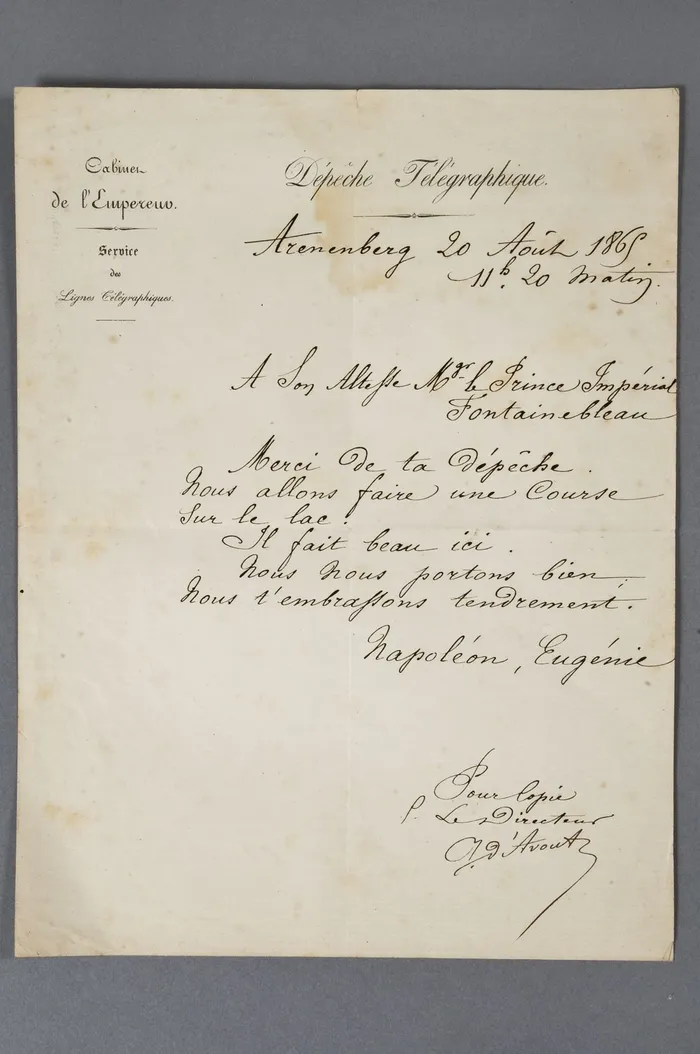 Cabinet
de l'Empereur.
Service
des
Lignes Télégraphiques.
Dépêche Télégraphique.
Arenenberg 20 Août 1865
11h. 20 Matin.
A Son Altesse Mgr le Prince Impérial
Fontainebleau
Merci de ta dépêche.
Nous allons faire une Course
Sur le lac.
Il fait beau ici.
Nous Nous portons bien,
Nous t'embrassons tendrement.
Napoléon, Eugénie
Pour Copie
P. Le Directeur
d'Avout